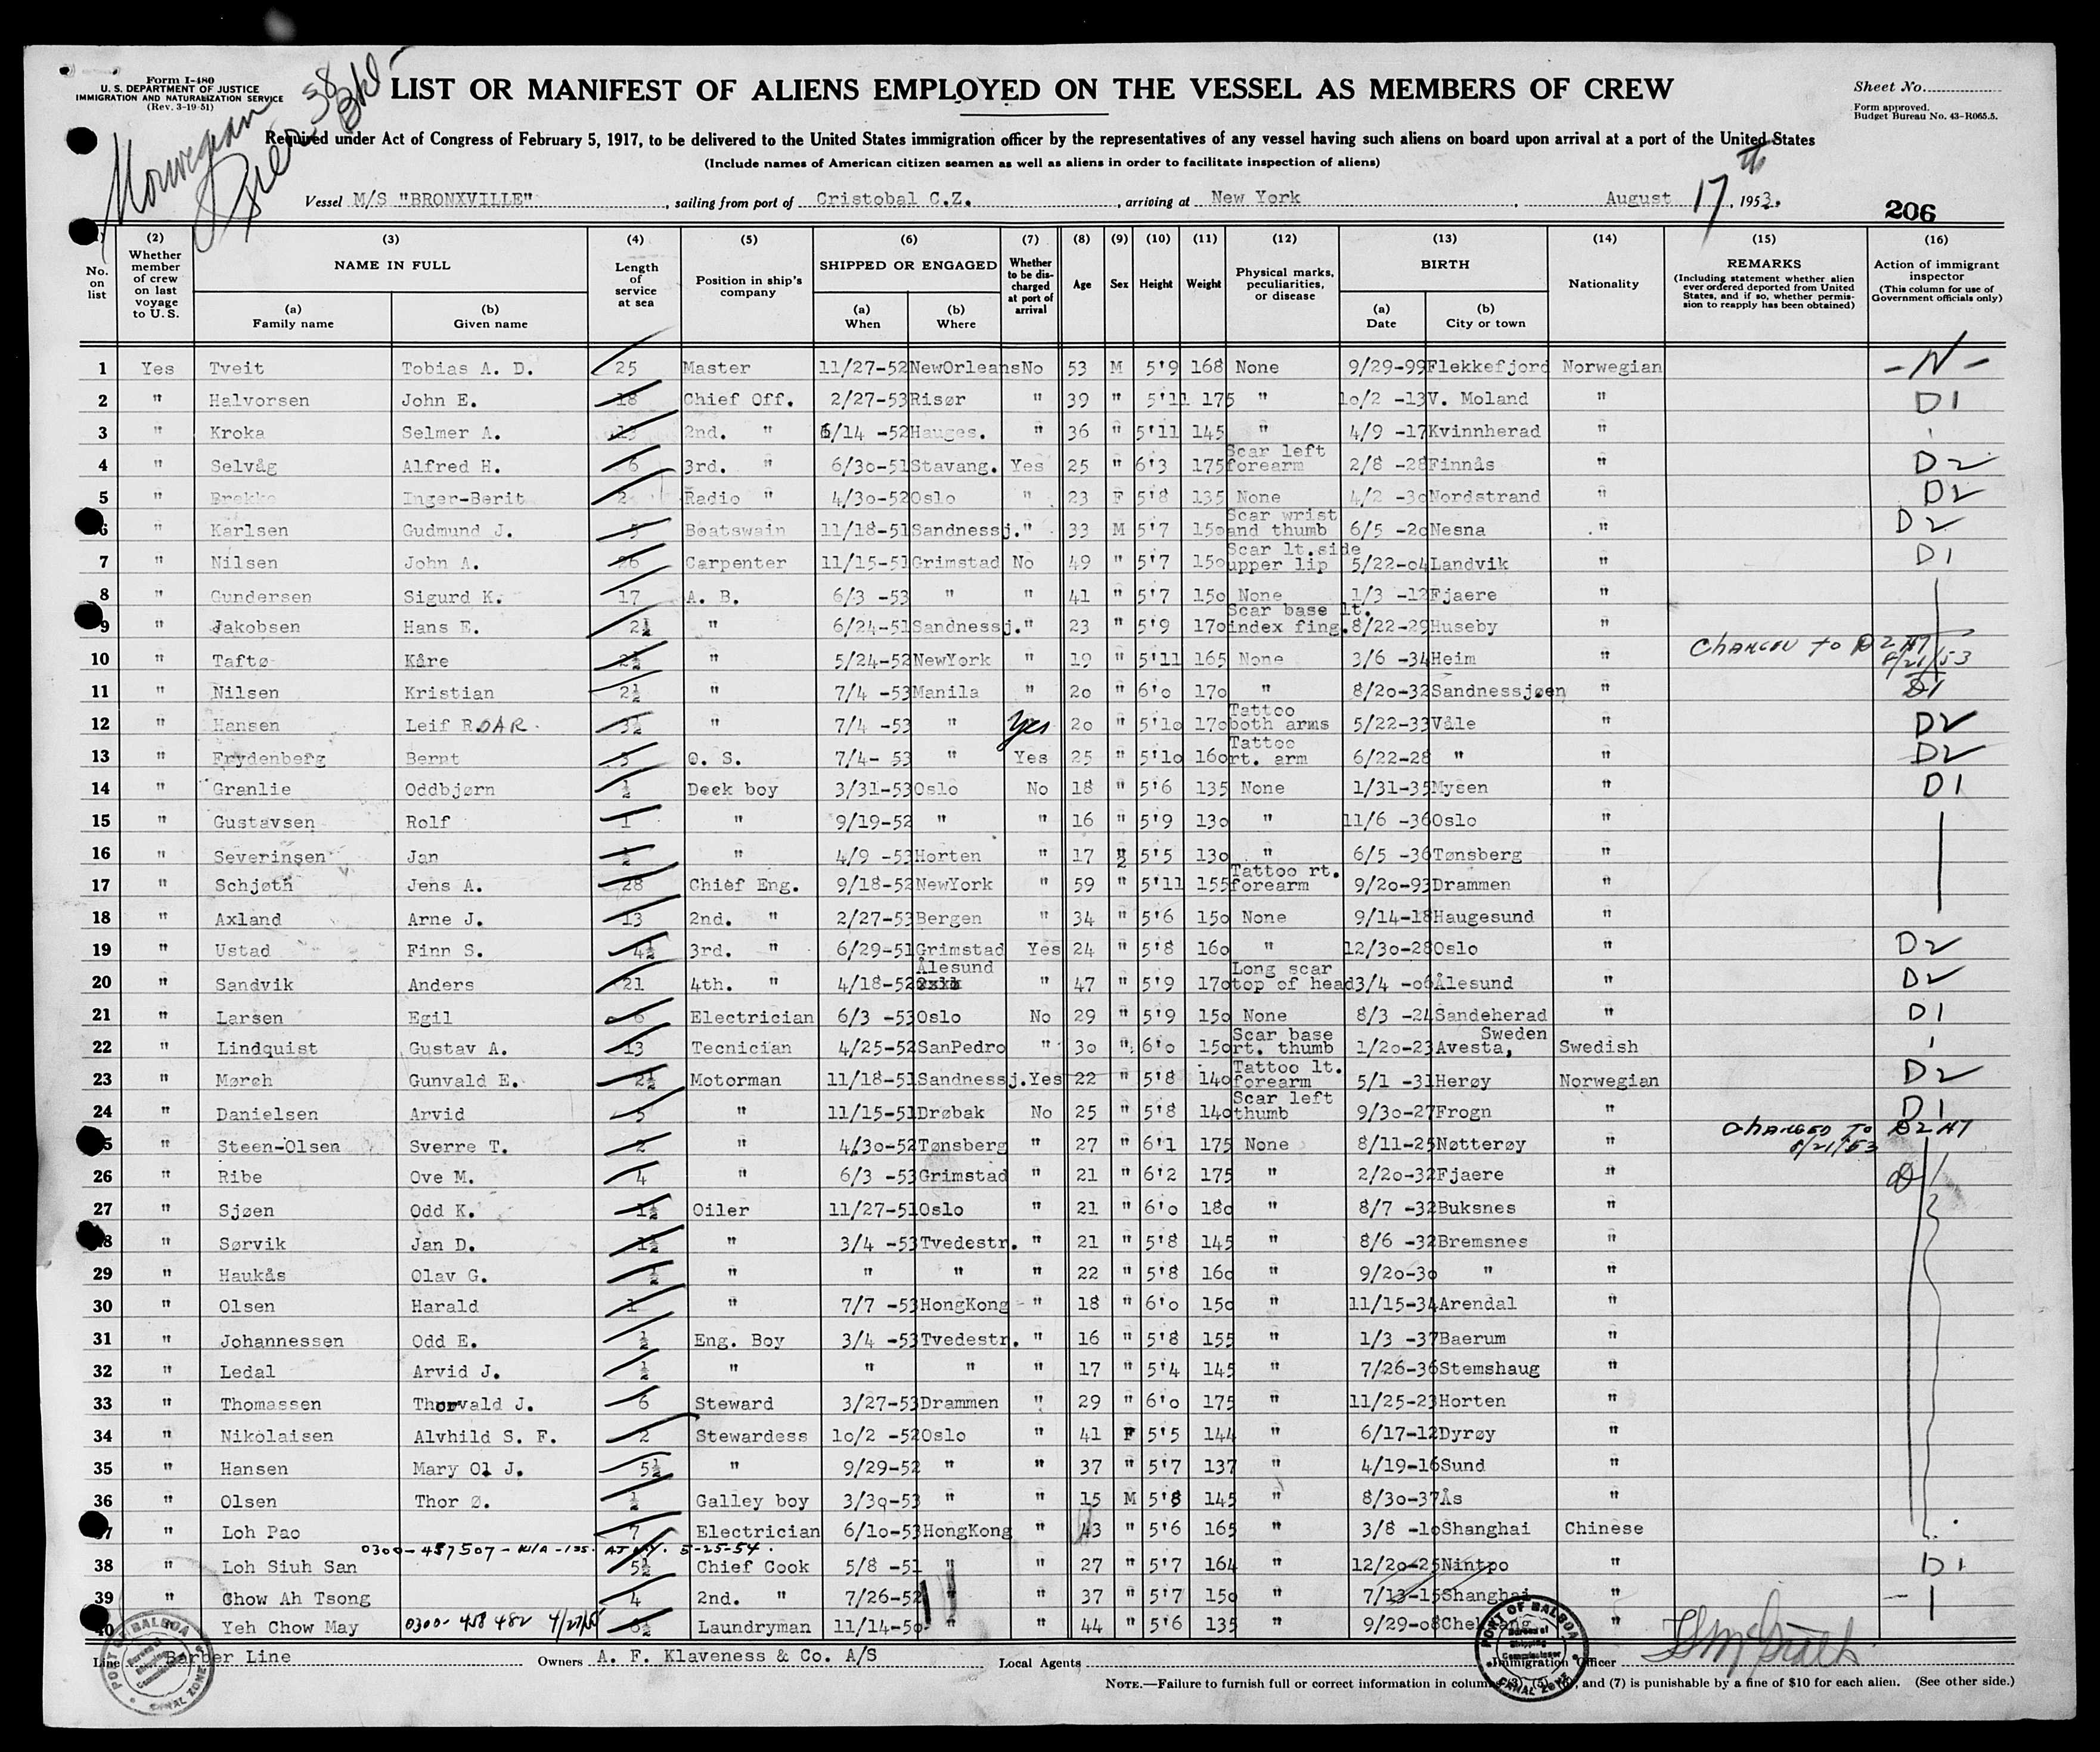 Form I-480
U. S. DEPARTMENT OF JUSTICE
IMMIGRATION AND NATURALIZATION SERVICE
(Rev. 3-19-51)
Norwegian
LIST OR MANIFEST OF ALIENS EMPLOYED ON THE VESSEL AS MEMBERS OF CREW
Sheet No.
Form approved.
Budget Bureau No. 43-R065.5.
Required under Act of Congress of February 5, 1917, to be delivered to the United States immigration officer by the representatives of any vessel having such aliens on board upon arrival at a port of the United States
(Include names of American citizen seamen as well as aliens in order to facilitate inspection of aliens)
Vessel M/S "BRONXVILLE", sailing from port of Cristobal C.Z., arriving at New York, August 17th, 1953.
206
(2) (3) (4) (5) (6) (7) (8) (9) (10) (11) (12) (13) (14) (15) (16)
No. on list
Whether member of crew on last voyage to U. S.
NAME IN FULL
(a) Family name
(b) Given name
Length of service at sea
Position in ship's company
SHIPPED OR ENGAGED
(a) When
(b) Where
Whether to be discharged at port of arrival
Age
Sex
Height
Weight
Physical marks, peculiarities, or disease
BIRTH
(a) Date
(b) City or town
Nationality
REMARKS
(Including statement whether alien ever ordered deported from United States, and if so, whether permission to reapply has been obtained)
Action of immigrant inspector
(This column for use of Government officials only)
1 Yes Tveit Tobias A. D. 25 Master 11/27-52 NewOrleans No 53 M 5'9 168 None 9/29-99 Flekkefjord Norwegian -N-
2 " Halvorsen John E. 18 Chief Off. 2/27-53 Risør " 39 " 5'11 175 " 10/2 -13 V. Moland " D1
3 " Kroka Selmer A. 13 2nd. " 6/14 -52 Hauges. " 36 " 5'11 145 " 4/9 -17 Kvinnherad "
4 " Selvåg Alfred H. 6 3rd. " 6/30-51 Stavang. Yes 25 " 6'3 175 Scar left forearm 2/8 -28 Finnås " D2
5 " Brekke Inger-Berit 2 Radio " 4/30-52 Oslo " 23 F 5'8 135 None 4/2 -30 Nordstrand " D2
6 " Karlsen Gudmund J. 5 Boatswain 11/18-51 Sandnessj. " 33 M 5'7 150 Scar wrist and thumb 6/5 -20 Nesna " D2
7 " Nilsen John A. 26 Carpenter 11/15-51 Grimstad No 49 " 5'7 150 Scar lt.side upper lip 5/22-04 Landvik " D1
8 " Gundersen Sigurd K. 17 A. B. 6/3 -53 " " 41 " 5'7 150 None 1/3 -12 Fjaere "
9 " Jakobsen Hans E. 2½ " 6/24-51 Sandnessj. " 23 " 5'9 170 Scar base lt. index fing. 8/22-29 Huseby "
10 " Taftø Kåre 2½ " 5/24-52 NewYork " 19 " 5'11 165 None 3/6 -34 Heim " Changed to D2 HT 8/21/53
11 " Nilsen Kristian 2½ " 7/4 -53 Manila " 20 " 6'0 170 " 8/20-32 Sandnessjøen " D1
12 " Hansen Leif ROAR 3½ " 7/4 -53 " Yes 20 " 5'10 170 Tattoo both arms 5/22-33 Våle " D2
13 " Frydenberg Bernt 3 O. S. 7/4- 53 " Yes 25 " 5'10 160 Tattoo rt. arm 6/22-28 " " D2
14 " Granlie Oddbjørn ½ Deck boy 3/31-53 Oslo No 18 " 5'6 135 None 1/31-35 Mysen " D1
15 " Gustavsen Rolf 1 " 9/19-52 " " 16 " 5'9 130 " 11/6 -36 Oslo "
16 " Severinsen Jan ½ " 4/9 -53 Horten " 17 " 5'5 130 " 6/5 -36 Tønsberg "
17 " Schjøth Jens A. 28 Chief Eng. 9/18-52 NewYork " 59 " 5'11 155 Tattoo rt. forearm 9/20-93 Drammen "
18 " Axland Arne J. 13 2nd. " 2/27-53 Bergen " 34 " 5'6 150 None 9/14-18 Haugesund "
19 " Ustad Finn S. 4½ 3rd. " 6/29-51 Grimstad Yes 24 " 5'8 160 " 12/30-28 Oslo " D2
20 " Sandvik Anders 21 4th. " 4/18-52 Ålesund " 47 " 5'9 170 Long scar top of head 3/4 -06 Ålesund " D2
21 " Larsen Egil 6 Electrician 6/3 -53 Oslo No 29 " 5'9 150 None 8/3 -24 Sandeherad " D1
22 " Lindquist Gustav A. 13 Tecnician 4/25-52 SanPedro " 30 " 6'0 150 Scar base rt. thumb 1/20-23 Avesta, Sweden Swedish
23 " Mørch Gunvald E. 2½ Motorman 11/18-51 Sandnessj. Yes 22 " 5'8 140 Tattoo lt. forearm 5/1 -31 Herøy Norwegian D2
24 " Danielsen Arvid 5 " 11/15-51 Drøbak No 25 " 5'8 140 Scar left thumb 9/30-27 Frogn " D1
25 " Steen-Olsen Sverre T. 2 " 4/30-52 Tønsberg " 27 " 6'1 175 None 8/11-25 Nøtterøy " Changed to D2 HT 8/21/53
26 " Ribe Ove M. 4 " 6/3 -53 Grimstad " 21 " 6'2 175 " 2/20-32 Fjaere "
27 " Sjøen Odd K. 1½ Oiler 11/27-51 Oslo " 21 " 6'0 180 " 8/7 -32 Buksnes "
28 " Sørvik Jan D. 1½ " 3/4 -53 Tvedestr. " 21 " 5'8 145 " 8/6 -32 Bremsnes "
29 " Haukås Olav G. ½ " " " " 22 " 5'8 160 " 9/20-30 " "
30 " Olsen Harald 1 " 7/7 -53 HongKong " 18 " 6'0 150 " 11/15-34 Arendal "
31 " Johannessen Odd E. ½ Eng. Boy 3/4 -53 Tvedestr. " 16 " 5'8 155 " 1/3 -37 Baerum "
32 " Ledal Arvid J. ½ " " " " 17 " 5'4 145 " 7/26-36 Stemshaug "
33 " Thomassen Thorvald J. 6 Steward 3/27-53 Drammen " 29 " 6'0 175 " 11/25-23 Horten "
34 " Nikolaisen Alvhild S. F. 2 Stewardess 10/2 -52 Oslo " 41 F 5'5 144 " 6/17-12 Dyrøy "
35 " Hansen Mary Ol J. 5½ " 9/29-52 " " 37 " 5'7 137 " 4/19-16 Sund "
36 " Olsen Thor Ø. ½ Galley boy 3/30-53 " " 15 M 5'8 145 " 8/30-37 Ås "
37 " Loh Pao 7 Electrician 6/10-53 HongKong " 43 " 5'6 165 " 3/8 -10 Shanghai Chinese
0300-457507- 5-25-54.
38 " Loh Siuh San 5½ Chief Cook 5/8 -51 " " 27 " 5'7 164 " 12/20-25 Nintpo " D1
39 " Chow Ah Tsong 4 2nd. " 7/26-52 " " 37 " 5'7 150 " 7/13-15 Shanghai "
40 " Yeh Chow May 0300-458 482 6½ Laundryman 11/14-50 " " 44 " 5'6 135 " 9/29-08 Chekiang "
Line Barber Line Owners A. F. Klaveness & Co. A/S Local Agents Immigration Officer
PORT OF BALBOA Bureau of Shipping Commissioner CANAL ZONE
PORT OF BALBOA Bureau of Shipping Commissioner CANAL ZONE
NOTE.—Failure to furnish full or correct information in columns (3), (5), and (7) is punishable by a fine of $10 for each alien. (See other side.)